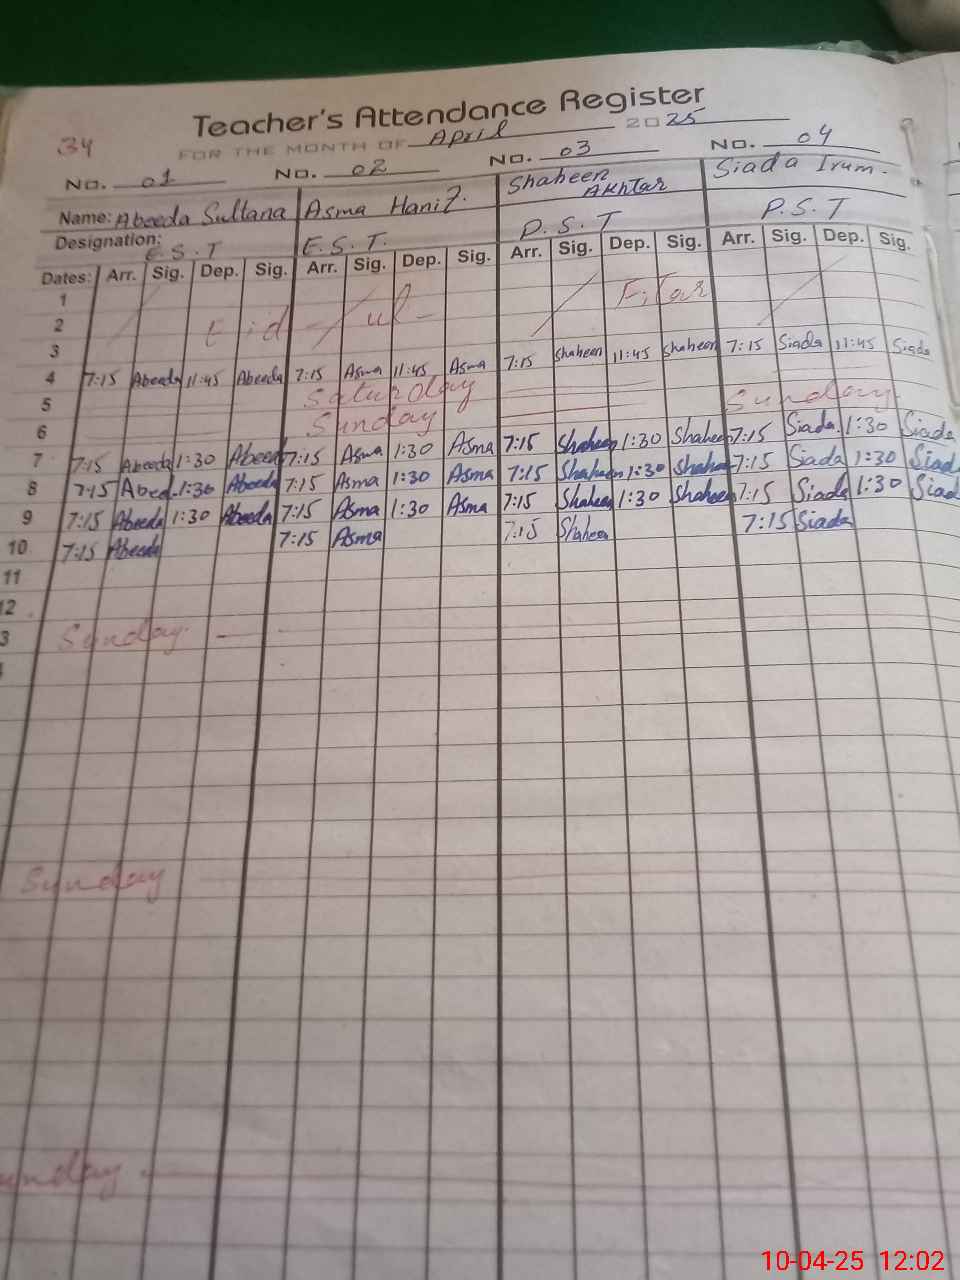 Teacher's Attendance Register
34 FOR THE MONTH OF April 2025
No. 01 No. 02 No. 03 No. 04
Name: Abeeda Sultana Asma Hanif. Shaheen Akhtar Siada Irum.
Designation: E.S.T E.S.T. P.S.T P.S.T
Dates: Arr. Sig. Dep. Sig. Arr. Sig. Dep. Sig. Arr. Sig. Dep. Sig. Arr. Sig. Dep. Sig.
1
2 Eid - ul - Fitar
3
4 7:15 Abeeda 11:45 Abeeda 7:15 Asma 11:45 Asma 7:15 Shaheen 11:45 Shaheen 7:15 Siada 11:45 Siada
5 Saturday
6 Sunday Sunday
7 7:15 Abeeda 1:30 Abeeda 7:15 Asma 1:30 Asma 7:15 Shaheen 1:30 Shaheen 7:15 Siada 1:30 Siada
8 7:15 Abed 1:30 Abeeda 7:15 Asma 1:30 Asma 7:15 Shaheen 1:30 Shahe 7:15 Siada 1:30 Siad
9 7:15 Abeeda 1:30 Abeeda 7:15 Asma 1:30 Asma 7:15 Shaheen 1:30 Shaheen 7:15 Siada 1:30 Siad
10 7:15 Abeeda 7:15 Asma 7:15 Shaheen 7:15 Siada
11
12
3 Sunday -
Sunday
unday -
10-04-25 12:02